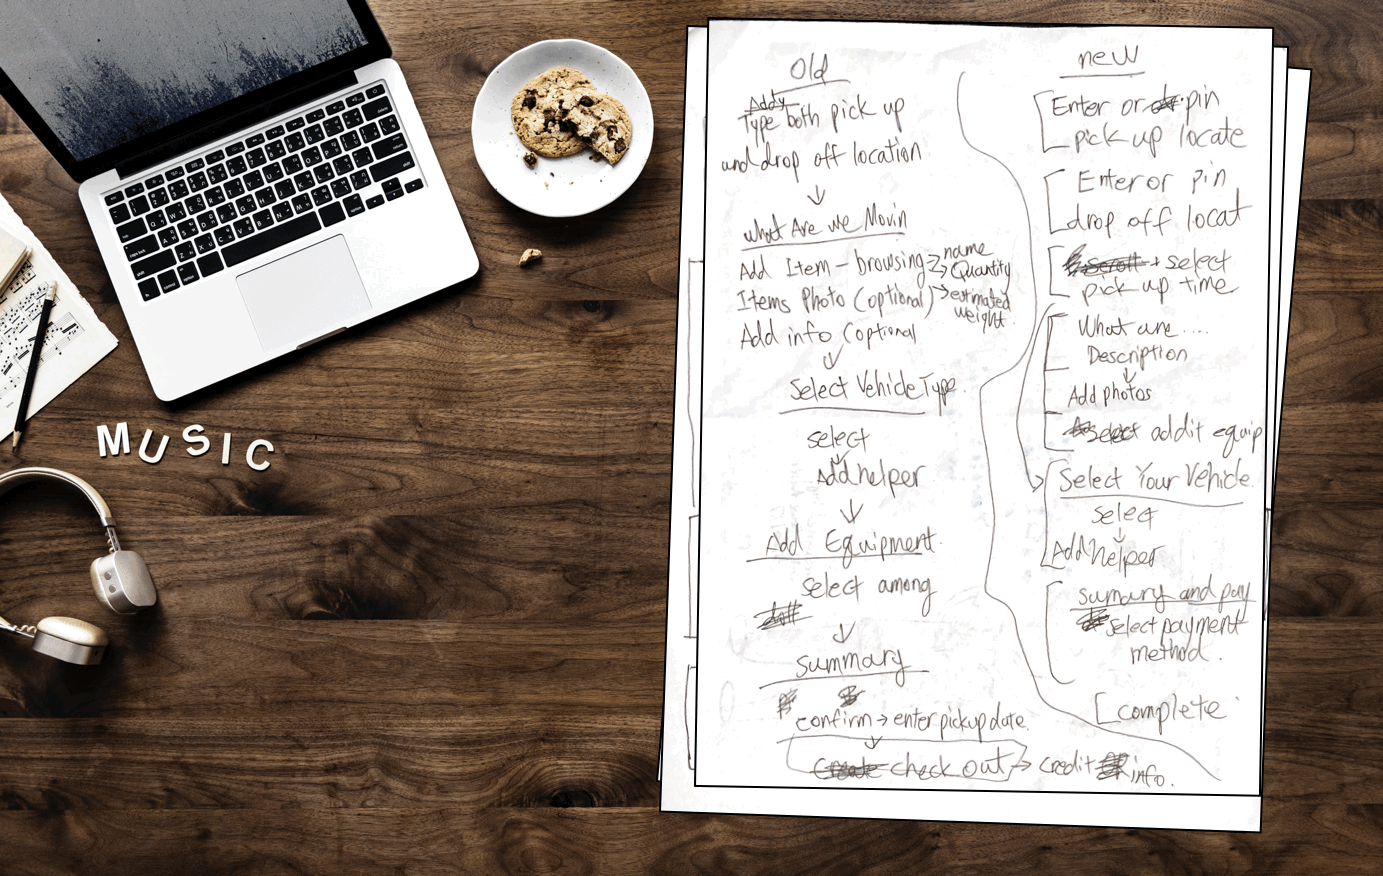 MUSIC
Old
Addy
Type both pick up
and drop off location
What Are we Movin
Add Item - browsing → name
→ Quantity
Items Photo (optional) → estimated
weight.
Add info (optional)
Select Vehicle Type.
select
Add helper
Add Equipment.
select among
summary
confirm → enter pickup date.
Create check out → credit info.
new
Enter or pin
pick up locate
Enter or pin
drop off locat
scroll + select
pick up time
What are ....
Description
Add photos
select addit equip
Select Your Vehicle.
select
Add helper
sumary and pay
select payment
method.
complete